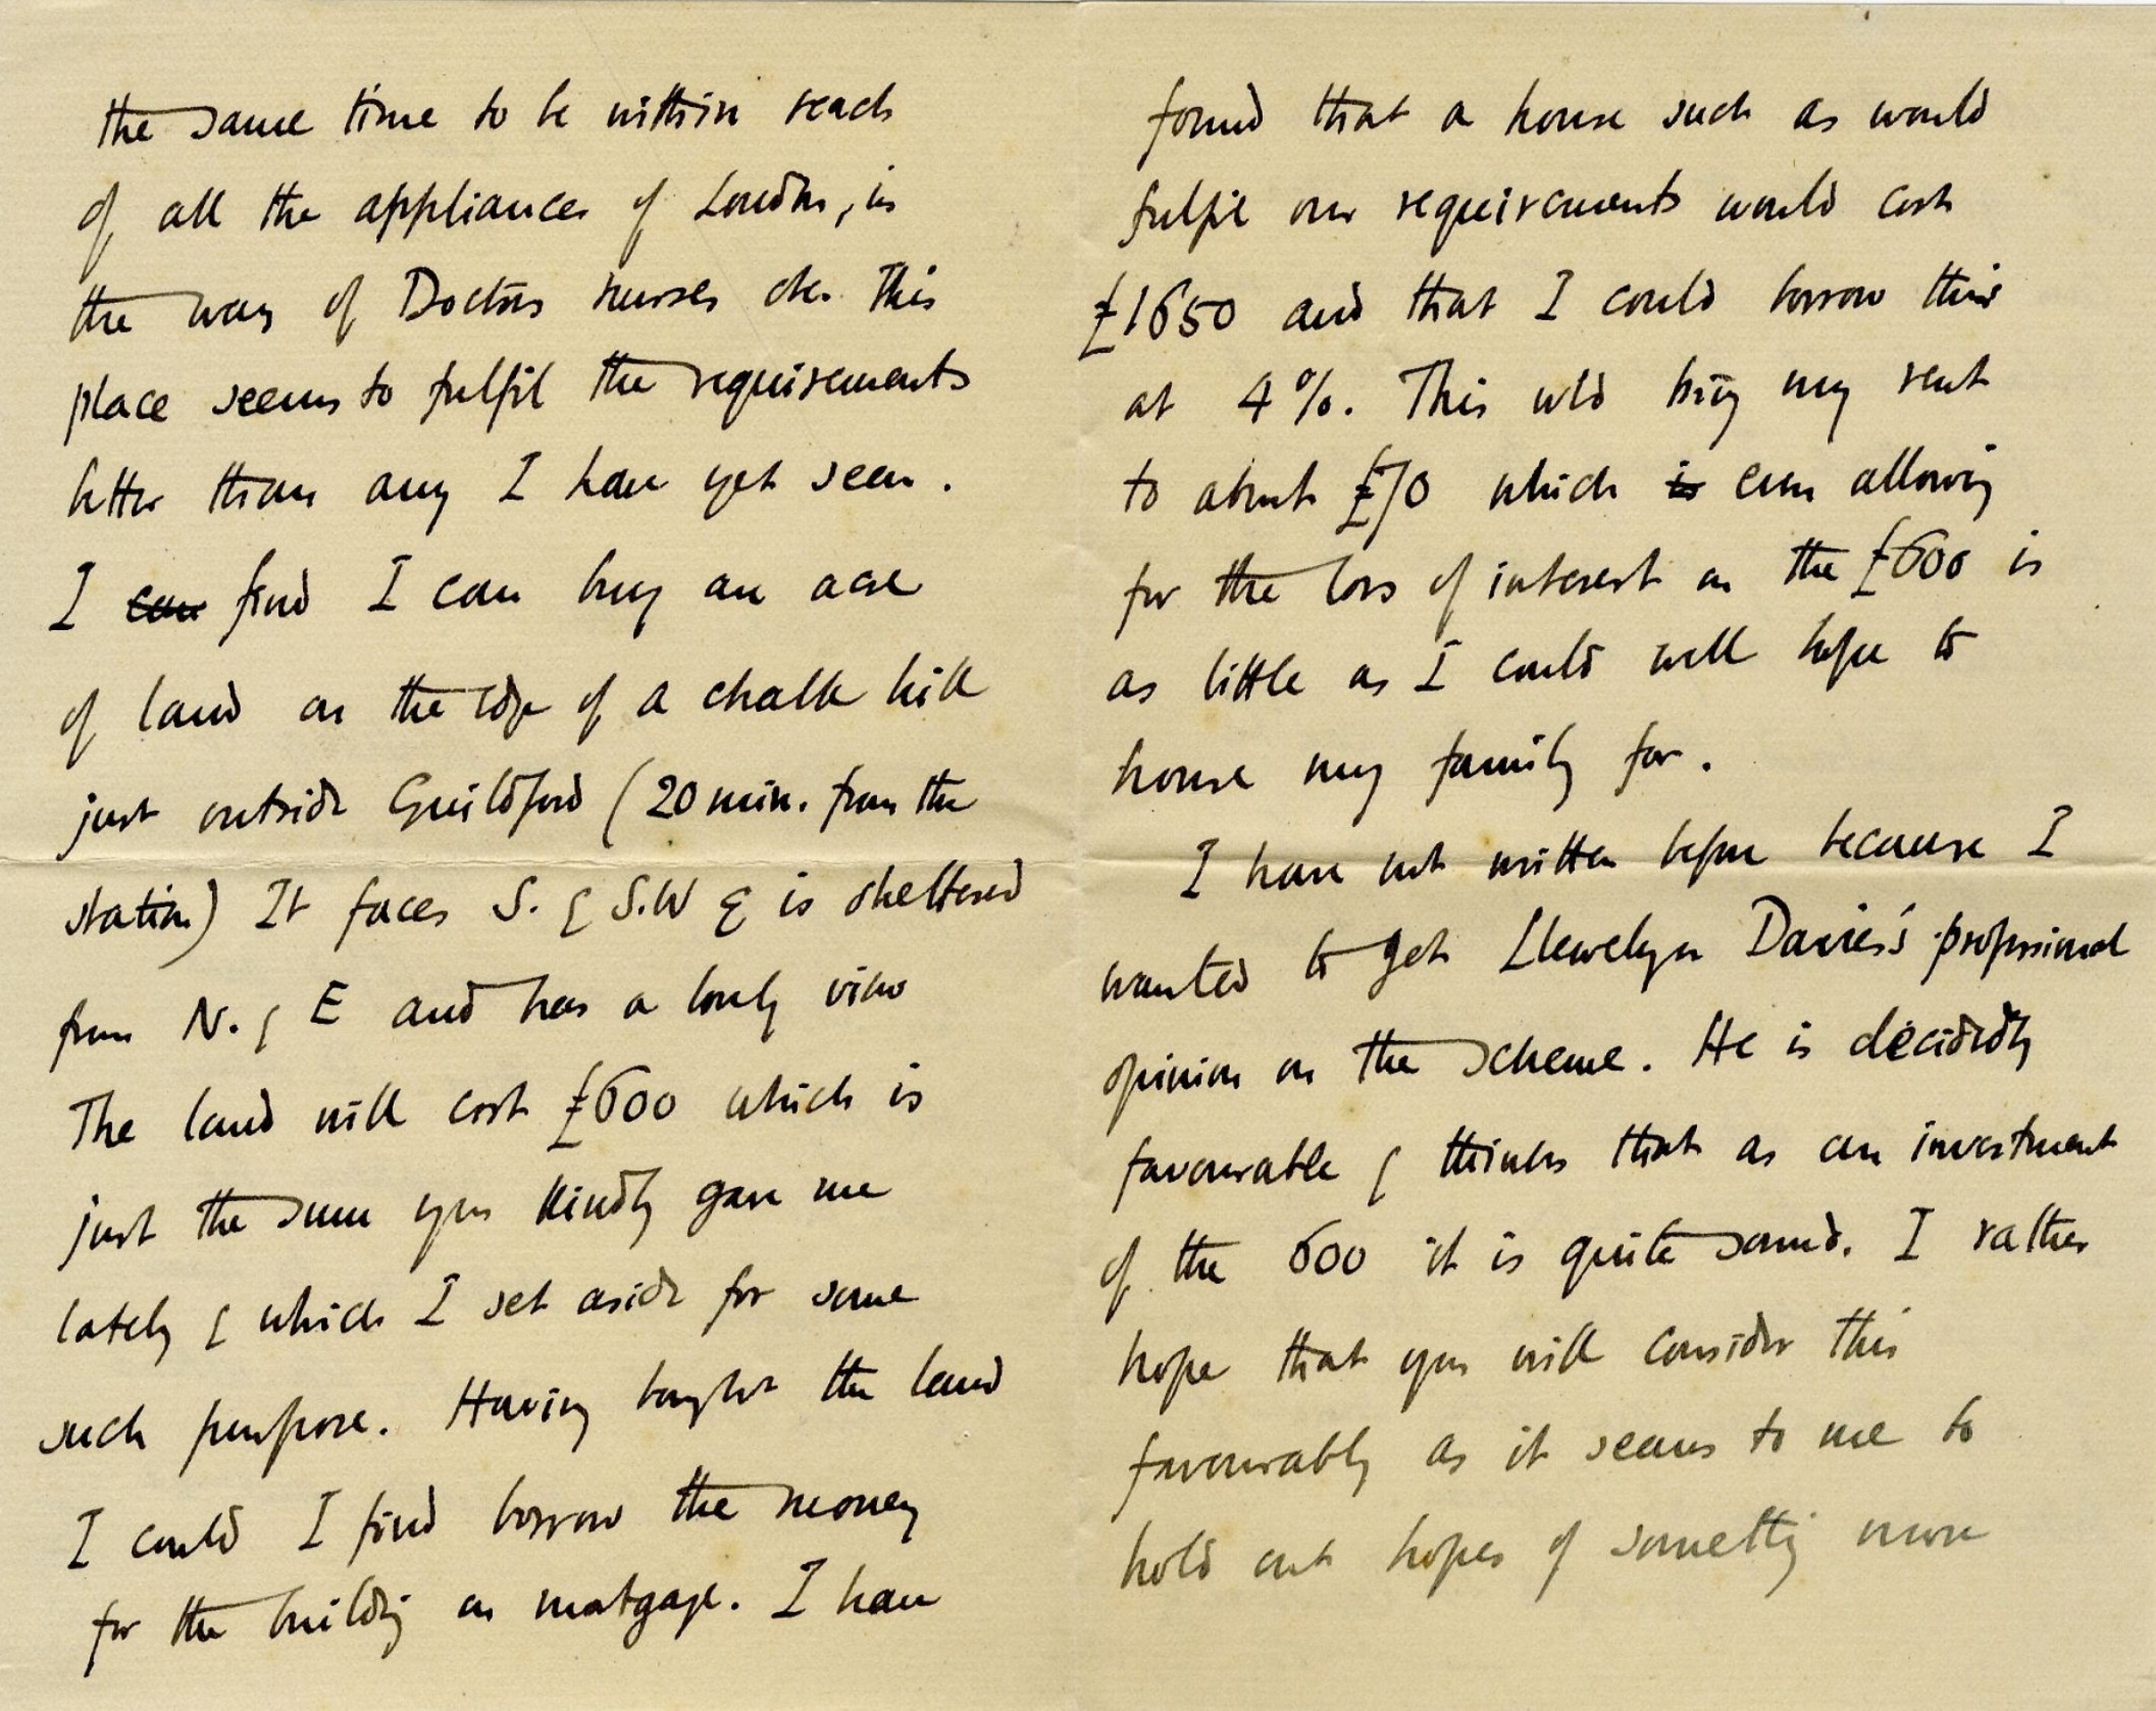 the same time to be within reach
of all the appliances of London, in
the way of Doctors nurses etc. This
place seems to fulfil the requirements
better than any I have yet seen.
I can find I can buy an acre
of land on the edge of a chalk hill
just outside Guildford (20 min. from the
station) It faces S. & S.W & is sheltered
from N. & E and has a lovely view
The land will cost £600 which is
just the sum you kindly gave me
lately & which I set aside for some
such purpose. Having bought the land
I could I find borrow the money
for the building on matgage. I have
found that a house such as would
fulfil our requirements would cost
£1650 and that I could borrow this
at 4%. This wld bring my rent
to about £70 which is even allowing
for the loss of interest on the £600 is
as little as I could well hope to
house my family for.
I have not written before because I
wanted to get Llewelyn Davies's professional
opinion on the scheme. He is decidedly
favourable & thinks that as an investment
of the 600 it is quite sound. I rather
hope that you will consider this
favourably as it seems to me to
hold out hopes of something more